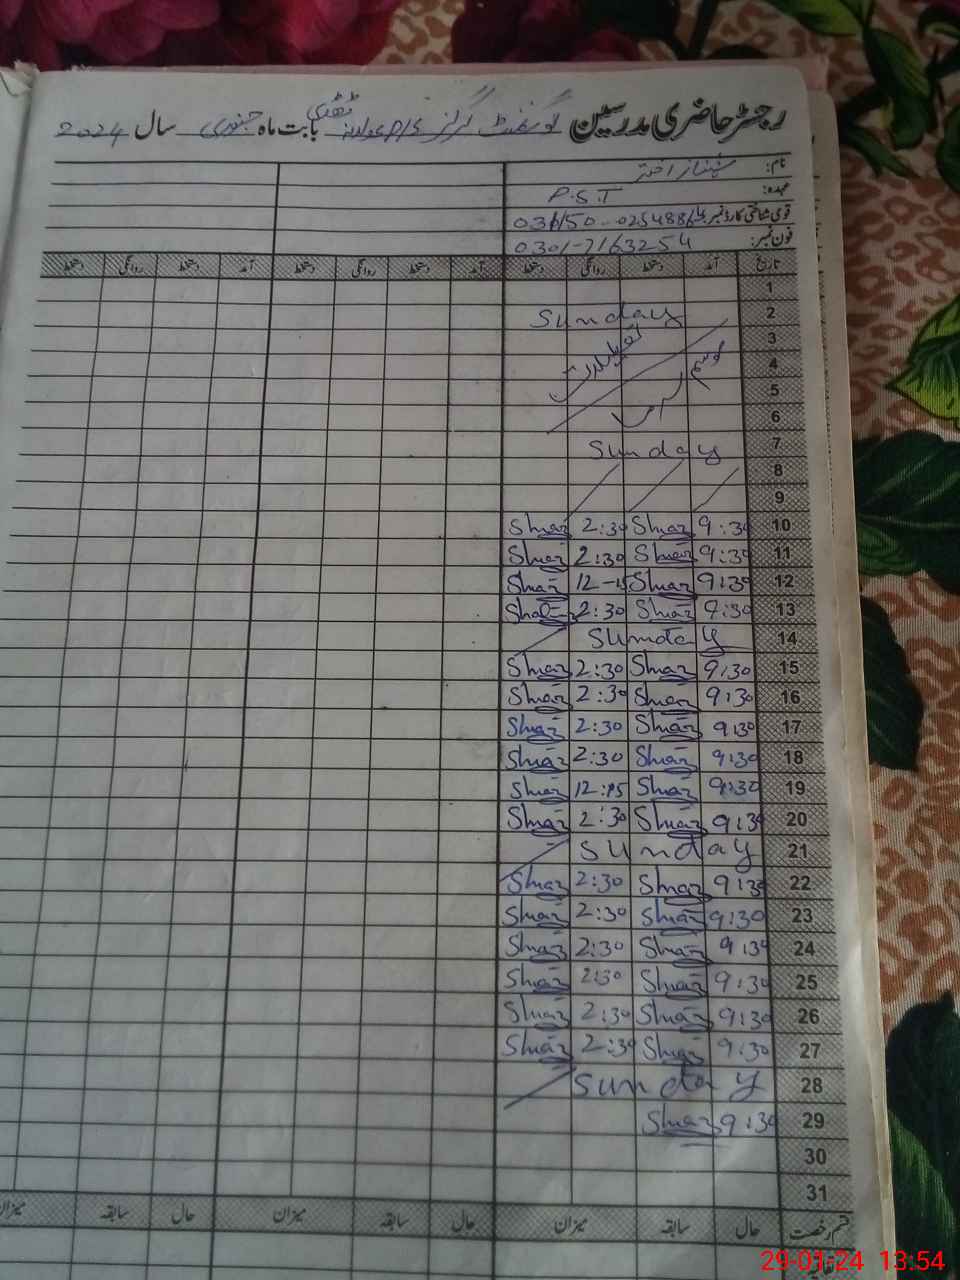 رجسٹر حاضری مدرسین گورنمنٹ گرلز P/S بابت ماہ جنوری سال 2024
نام: شہناز اختر
عہدہ: P.S.T
قومی شناختی کارڈ نمبر:
فون نمبر: 0301-7163254
تاریخ آمد دستخط روانگی دستخط آمد دستخط روانگی دستخط آمد دستخط روانگی دستخط
1
2 Sunday
3
4 موسم سرما
5 تعطیلات
6
7 Sunday
8
9
10 9:30 Shnaz 2:30 Shnaz
11 9:30 Shnaz 2:30 Shnaz
12 9:30 Shnaz 12-15 Shnaz
13 9:30 Shnaz 2:30 Shnaz
14 Sunday
15 9:30 Shnaz 2:30 Shnaz
16 9:30 Shnaz 2:30 Shnaz
17 9:30 Shnaz 2:30 Shnaz
18 9:30 Shnaz 2:30 Shnaz
19 9:30 Shnaz 12:15 Shnaz
20 9:30 Shnaz 2:30 Shnaz
21 Sunday
22 9:30 Shnaz 2:30 Shnaz
23 9:30 Shnaz 2:30 Shnaz
24 9:30 Shnaz 2:30 Shnaz
25 9:30 Shnaz 2:30 Shnaz
26 9:30 Shnaz 2:30 Shnaz
27 9:30 Shnaz 2:30 Shnaz
28 Sunday
29 9:30 Shnaz
30
31
قسم رخصت حال سابقہ میزان حال سابقہ میزان حال سابقہ میزان
29-01-24 13:54